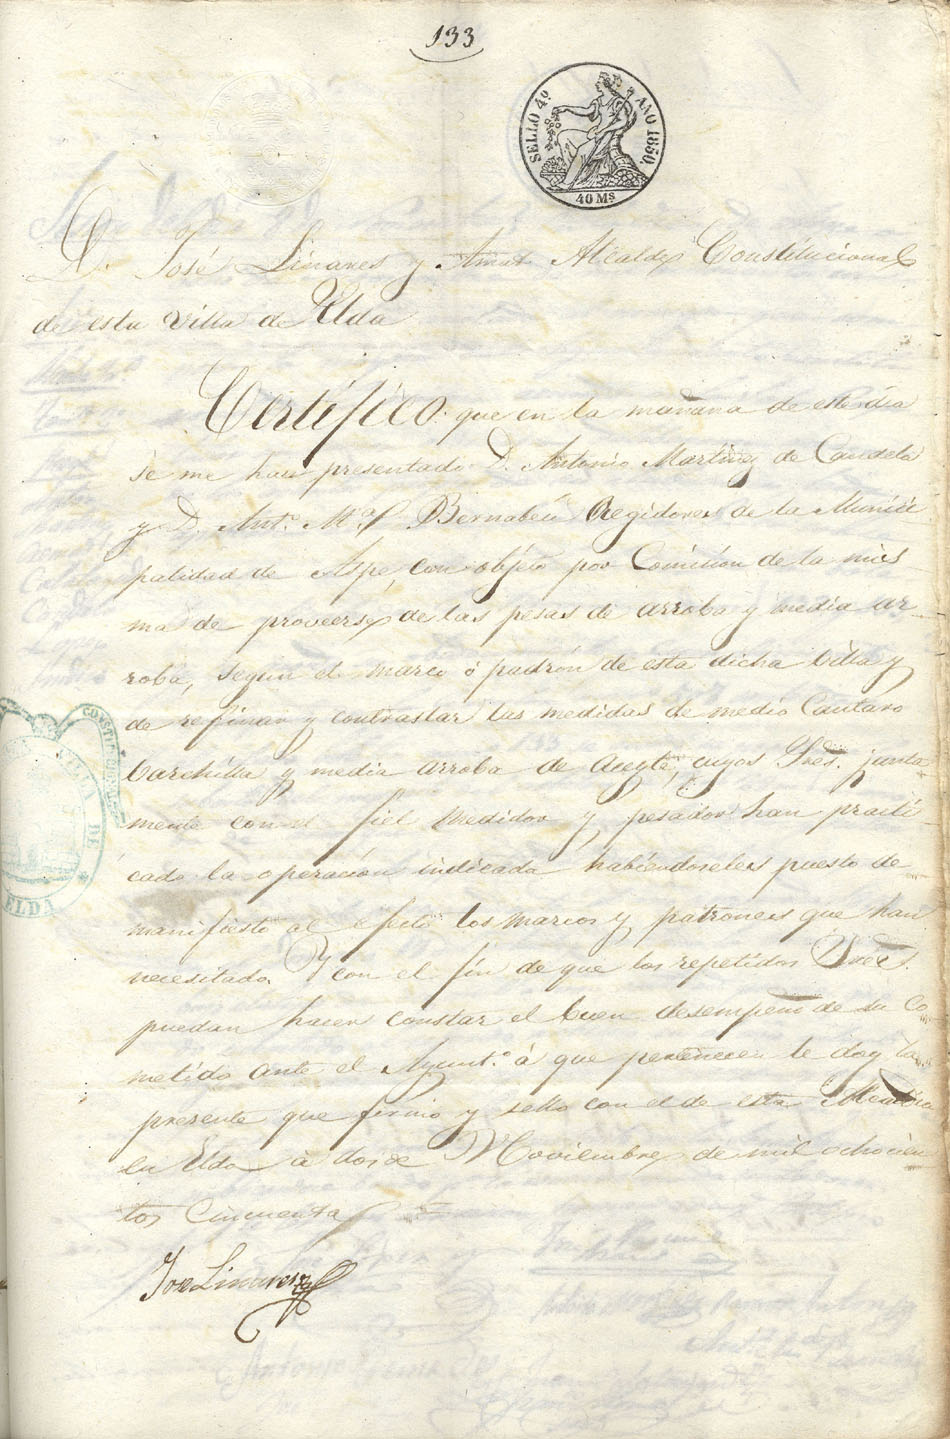 133
SELLO 4º AÑO 1850.
40 Ms
D. José Linares y Amat Alcalde Constitucional
de esta villa de Elda
Certifico: que en la mañana de este dia
se me han presentado D. Antonio Martinez de Candela
y D. Antº Mª Bernabéu Regidores de la Munici
palidad de Aspe, con objeto por Comision de la mis
ma de proveerse de las pesas de arroba y media ar
roba, segun el marco ó padrón de esta dicha Villa y
de refinar y contrastar las medidas de medio Cantaro
barchilla y media arroba de aceyte, cuyos Sres. junta
mente con el fiel medidor y pesador han practi
cado la operacion indicada habiendoseles puesto de
manifiesto al efecto los marcos y patrones que han
necesitado. Y con el fin de que los repetidos Sres.
puedan hacer constar el buen desempeño de su co
metido ante el Ayuntº á que pertenecen le doy la
presente que firmo y sello con el de esta Alcaldia
en Elda á dos de Noviembre de mil ochocien
tos cincuenta
Jose Linares
CONSTITUCIONAL
DE
ELDA